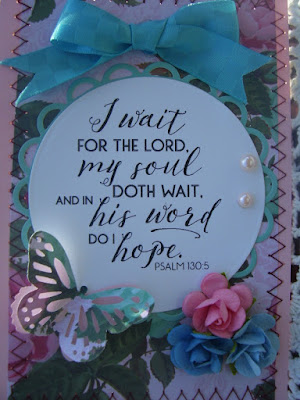 I wait
FOR THE LORD,
my soul
DOTH WAIT,
AND IN his word
DO I hope.
PSALM 130:5